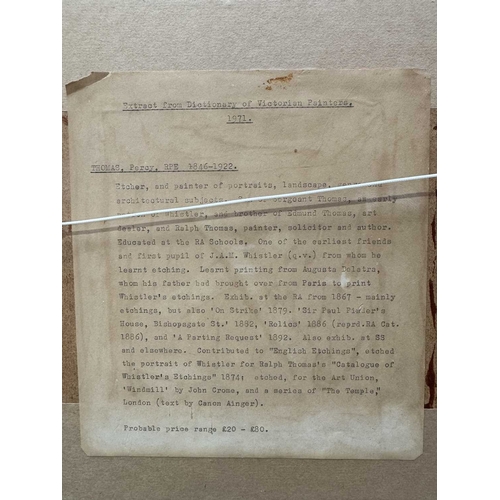 Extract from Dictionary of Victorian Painters.
1971.
THOMAS, Percy, RPE 1846-1922.
Etcher, and painter of portraits, landscape,
architectural subjects. Sergeant Thomas, an early
of Whistler, and brother of Edmund Thomas, art
dealer, and Ralph Thomas, painter, solicitor and author.
Educated at the RA Schools. One of the earliest friends
and first pupil of J.A.M. Whistler (q.v.) from whom he
learnt etching. Learnt printing from Auguste Delatre,
whom his father had brought over from Paris to print
Whistler's etchings. Exhib. at the RA from 1867 - mainly
etchings, but also 'On Strike' 1879. 'Sir Paul Pinder's
House, Bishopsgate St.' 1882, 'Relics' 1886 (reprd.RA Cat.
1886), and 'A Parting Request' 1892. Also exhib. at SS
and elsewhere. Contributed to "English Etchings", etched
the portrait of Whistler for Ralph Thomas's "Catalogue of
Whistler's Etchings" 1874; etched, for the Art Union,
'Windmill' by John Crome, and a series of "The Temple,"
London (text by Canon Ainger).
Probable price range £20 - £80.